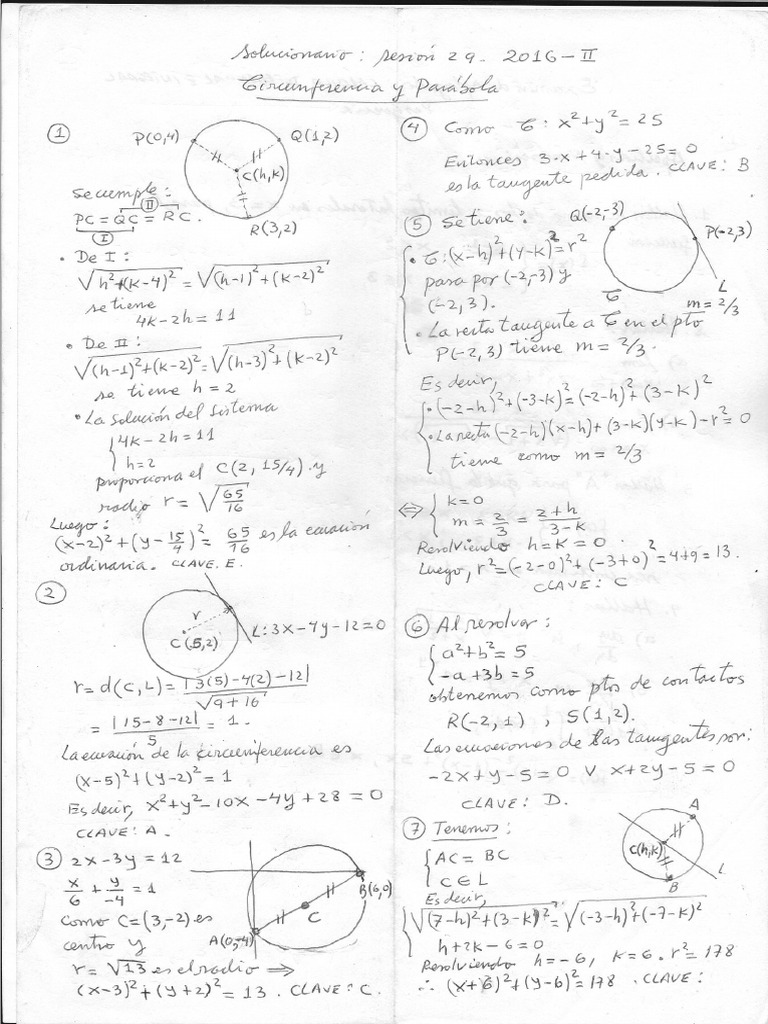 Solucionario: sesión 29. 2016-II
Circunferencia y Parábola
①
P(0,4)
Q(1,2)
C(h,k)
R(3,2)
Se cumple:
II
PC = QC = RC.
I
• De I:
√(h²+(k-4)²) = √((h-1)²+(k-2)²)
se tiene
4k-2h=11
• De II:
√((h-1)²+(k-2)²) = √((h-3)²+(k-2)²)
se tiene h=2
• La solución del sistema
{4k-2h=11
h=2
proporciona el C(2, 15/4) y
radio r = √(65/16)
Luego:
(x-2)²+(y-15/4)² = 65/16 es la ecuación
ordinaria. CLAVE. E.
②
r
C(5,2)
L: 3x-4y-12=0
r = d(C,L) = |3(5)-4(2)-12| / √(9+16)
= |15-8-12| / 5 = 1.
La ecuación de la circunferencia es
(x-5)²+(y-2)² = 1
Es decir, x²+y²-10x-4y+28=0
CLAVE: A.
③ 2x-3y=12
x/6 + y/-4 = 1
Como C=(3,-2) es
centro y
r = √13 es el radio ⇒
(x-3)²+(y+2)² = 13. CLAVE: C.
B(6,0)
C
A(0,-4)
④ Como C: x²+y²=25
Entonces 3·x+4·y-25=0
es la tangente pedida. CLAVE: B
⑤ Se tiene:
Q(-2,-3)
P(-2,3)
L
m=2/3
C
{• C: (x-h)²+(y-k)²=r²
pasa por (-2,-3) y
(-2,3).
• La recta tangente a C en el pto
P(-2,3) tiene m=2/3.
Es decir,
{• (-2-h)²+(-3-k)²=(-2-h)²+(3-k)²
• La recta (-2-h)(x-h)+(3-k)(y-k)-r²=0
tiene como m=2/3
⇔ {k=0
m = 2/3 = (2+h)/(3-k)
Resolviendo h=k=0.
Luego, r²=(-2-0)²+(-3+0)²=4+9=13.
CLAVE: C
⑥ Al resolver:
{a²+b²=5
-a+3b=5
obtenemos como ptos de contactos
R(-2,1), S(1,2).
Las ecuaciones de las tangentes son:
-2x+y-5=0 ∨ x+2y-5=0
CLAVE: D.
⑦ Tenemos:
A
C(h,k)
B
L
{AC = BC
C ∈ L
Es decir,
{√((7-h)²+(3-k)²) = √((-3-h)²+(-7-k)²)
h+2k-6=0
Resolviendo h=-6, k=6. r²=178
∴ (x+6)²+(y-6)²=178. CLAVE: